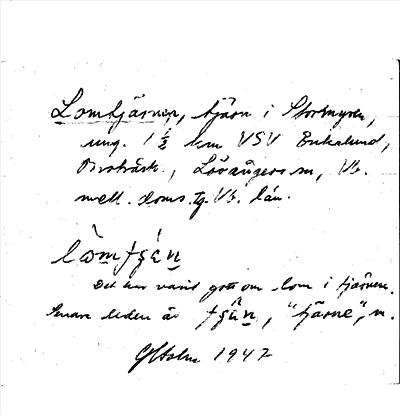 Lomtjärnen, tjärn i Stormyren,
ung. 1 ½ km VSV Enkelund,
Bissträsk, Lövångers sn, Vb.
mell. doms. tg. Vb. län.
lòmtjä́n
Det har varit gott om lom i tjärnen.
Senare leden är tjä̂n, "tjärne", n.
G Holm 1947